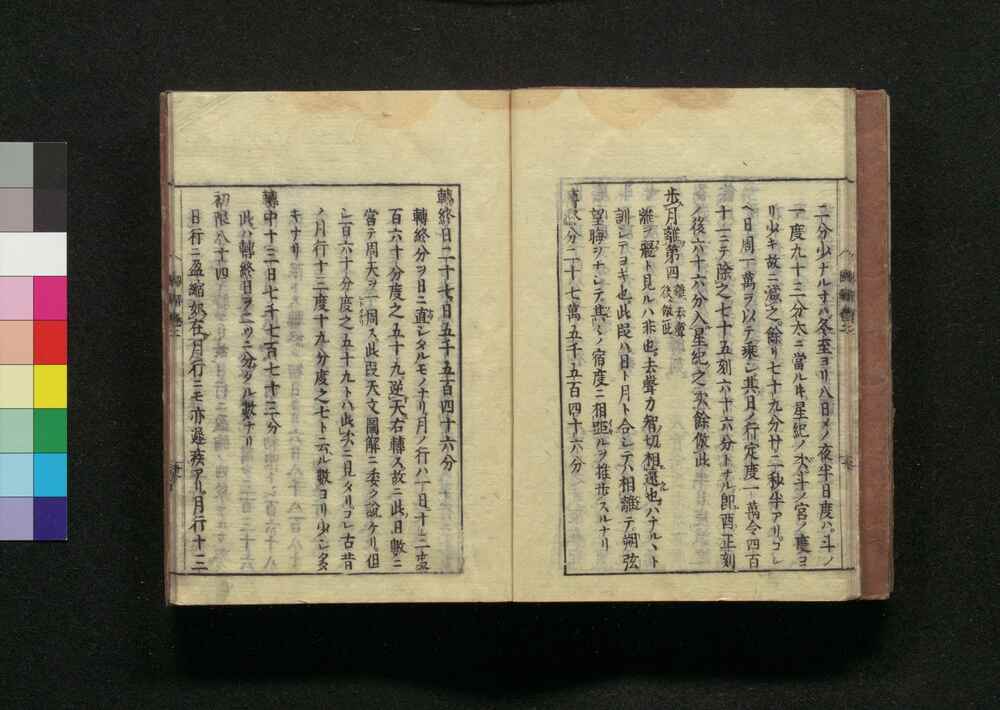 二分少ナル寸ハ冬至ヨリ八日メノ夜半日度ハ斗ノ
一度九十三分太ニ當ル𪜈星紀ノ次斗ノ宮ノ度ヨ
リ少キ故ニ減之餘リ七十九分廿二秒半アリコレ
ヘ日周一萬ヲ以テ乗シ其日ノ行定度一萬令四百
十一ニテ除之七十五刻六十六分トナル即酉正刻
ノ後六十六分入星紀之次餘倣此
步月離第四 離去聲後倣此
離ヲ麗ト見ルハ非也去聲力智切相遠也ハナルヽト
訓シテヨキ也此段ハ日ト月ト合シテハ相離テ朔弦
望晦ヲナシテ其ノ宿度ニ相距ルヲ推步スルナリ
轉終分二十七萬五千五百四十六分
轉終日二十七日五千五百四十六分
轉終分ヲ日ニ直シタルモノナリ月ノ行ハ一日十二度
百六十分度之五十九逆天右轉ス故ニ此日數ニ
當テ周天ヲ一周ス此段天文圖解ニ委ク註ケリ但
二百六十分度之五十九トハ此次ニ見タリコレ古昔
ノ月行十三度十九分度之七ト云ル數ヨリ少シ多
キナリ
轉中十三日七千七百七十三分
此ハ轉終日ヲ二ツニ分タル數ナリ
初限八十四
日行ニ盈縮如在月行ニモ亦遲疾アリ月行十二